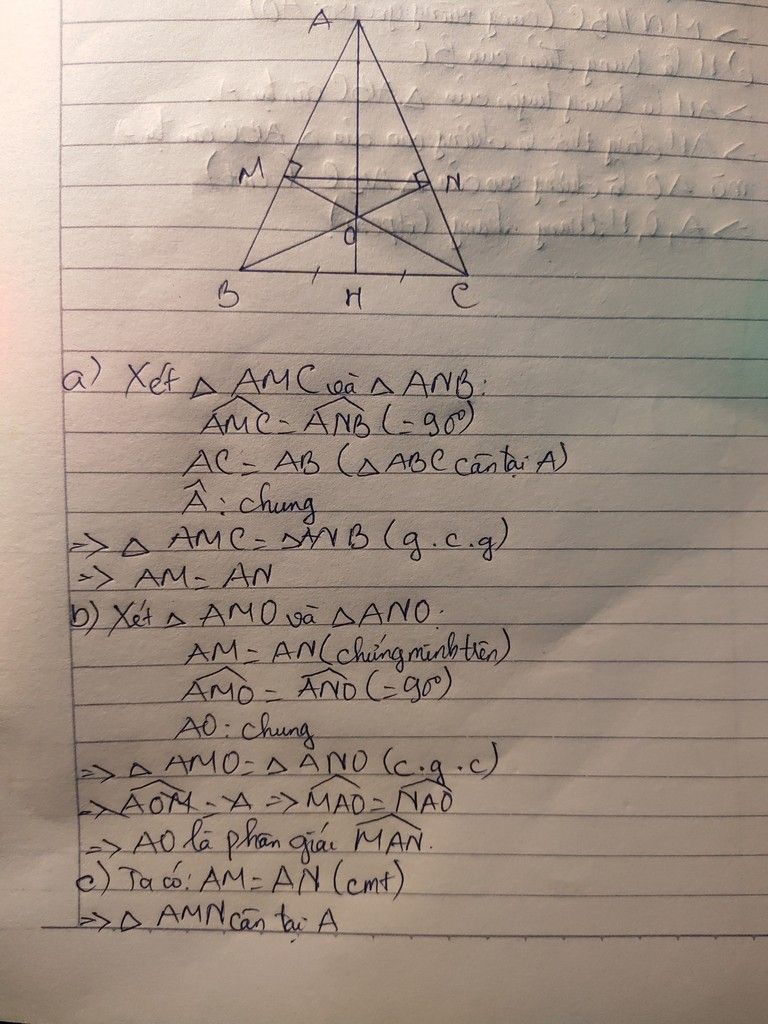 A
M
N
O
B
H
C
a) Xét △ AMC và △ ANB:
AMC = ANB (= 90°)
AC = AB (△ ABC cân tại A)
Â: chung
=> △ AMC = △ANB (g.c.g)
=> AM = AN
b) Xét △ AMO và △ ANO:
AM = AN (chứng minh trên)
AMO = ANO (= 90°)
AO: chung
=> △ AMO = △ ANO (c.g.c)
=> AOM - A => MAO = NAO
=> AO là phân giác MAN.
c) Ta có: AM = AN (cmt)
=> △ AMN cân tại A